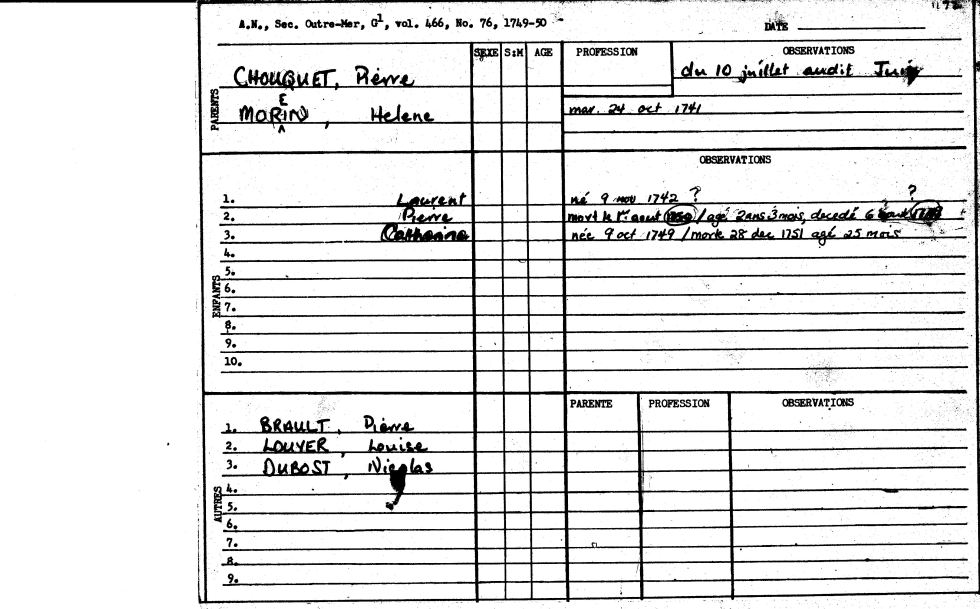 A.N., Sec. Outre-Mer, G1, vol. 466, No. 76, 1749-50
DATE
SEXE S:M AGE PROFESSION OBSERVATIONS
PARENTS
CHOUQUET, Pierre du 10 juillet audit
E
MORIN, Helene mar. 24 oct 1741
OBSERVATIONS
ENFANTS
1. Laurent né 9 nov 1742 ? ?
2. Pierre mort le 1er aout 1750 / agé 2ans 3mois, decedé 6
3. Catherine née 9 oct 1749 / morte 28 dec 1751 agé 25 mois
4.
5.
6.
7.
8.
9.
10.
PARENTE PROFESSION OBSERVATIONS
AUTRES
1. BRAULT, Pierre
2. LOUYER, Louise
3. DUBOST, Nicolas
4.
5.
6.
7.
8.
9.